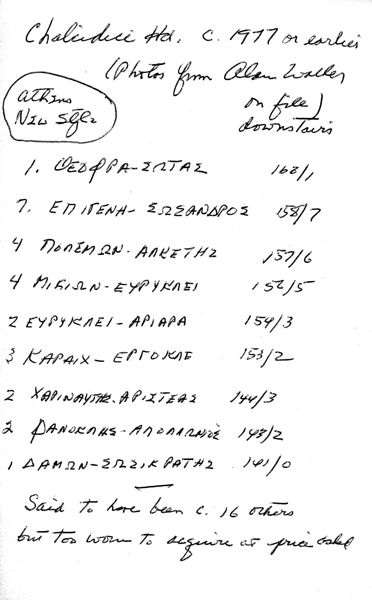 Chalcidice Hd. c. 1977 or earlier
(Photos from Alan Walker
on file)
downstairs
Athens
New Style
1. ΘΕΟΦΡΑ-ΣΩΤΑΣ 162/1
7. ΕΠΙΓΕΝΗ-ΣΩΣΑΝΔΡΟΣ 158/7
4 ΠΟΛΕΜΩΝ-ΑΛΚΕΤΗΣ 157/6
4 ΜΙΚΙΩΝ-ΕΥΡΥΚΛΕΙ 156/5
2 ΕΥΡΥΚΛΕΙ-ΑΡΙΑΡΑ 154/3
3 ΚΑΡΑΙΧ-ΕΡΓΟΚΛΕ 153/2
2 ΧΑΡΙΝΑΥΤΗΣ-ΑΡΙΣΤΕΑΣ 144/3
2 ΦΑΝΟΚΛΗΣ-ΑΠΟΛΛΩΝΙΟΣ 143/2
1 ΔΑΜΩΝ-ΣΩΣΙΚΡΑΤΗΣ 141/0
Said to have been c. 16 others
but too worn to acquire at price asked